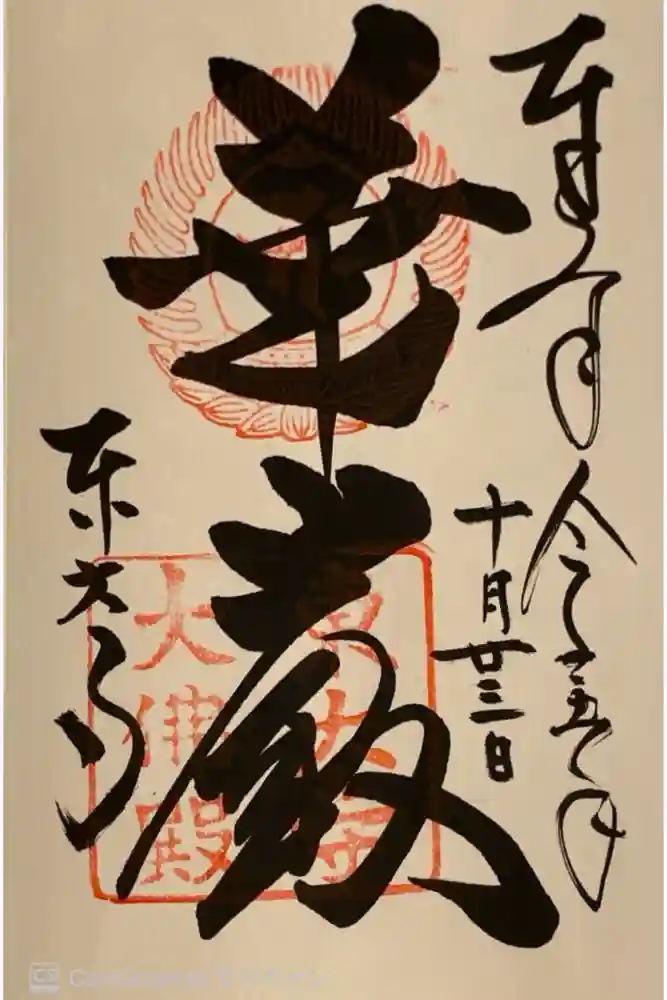 奉拝
令和五年
十月廿三日
華厳
東大寺
東大寺
大佛殿
CS CamScanner